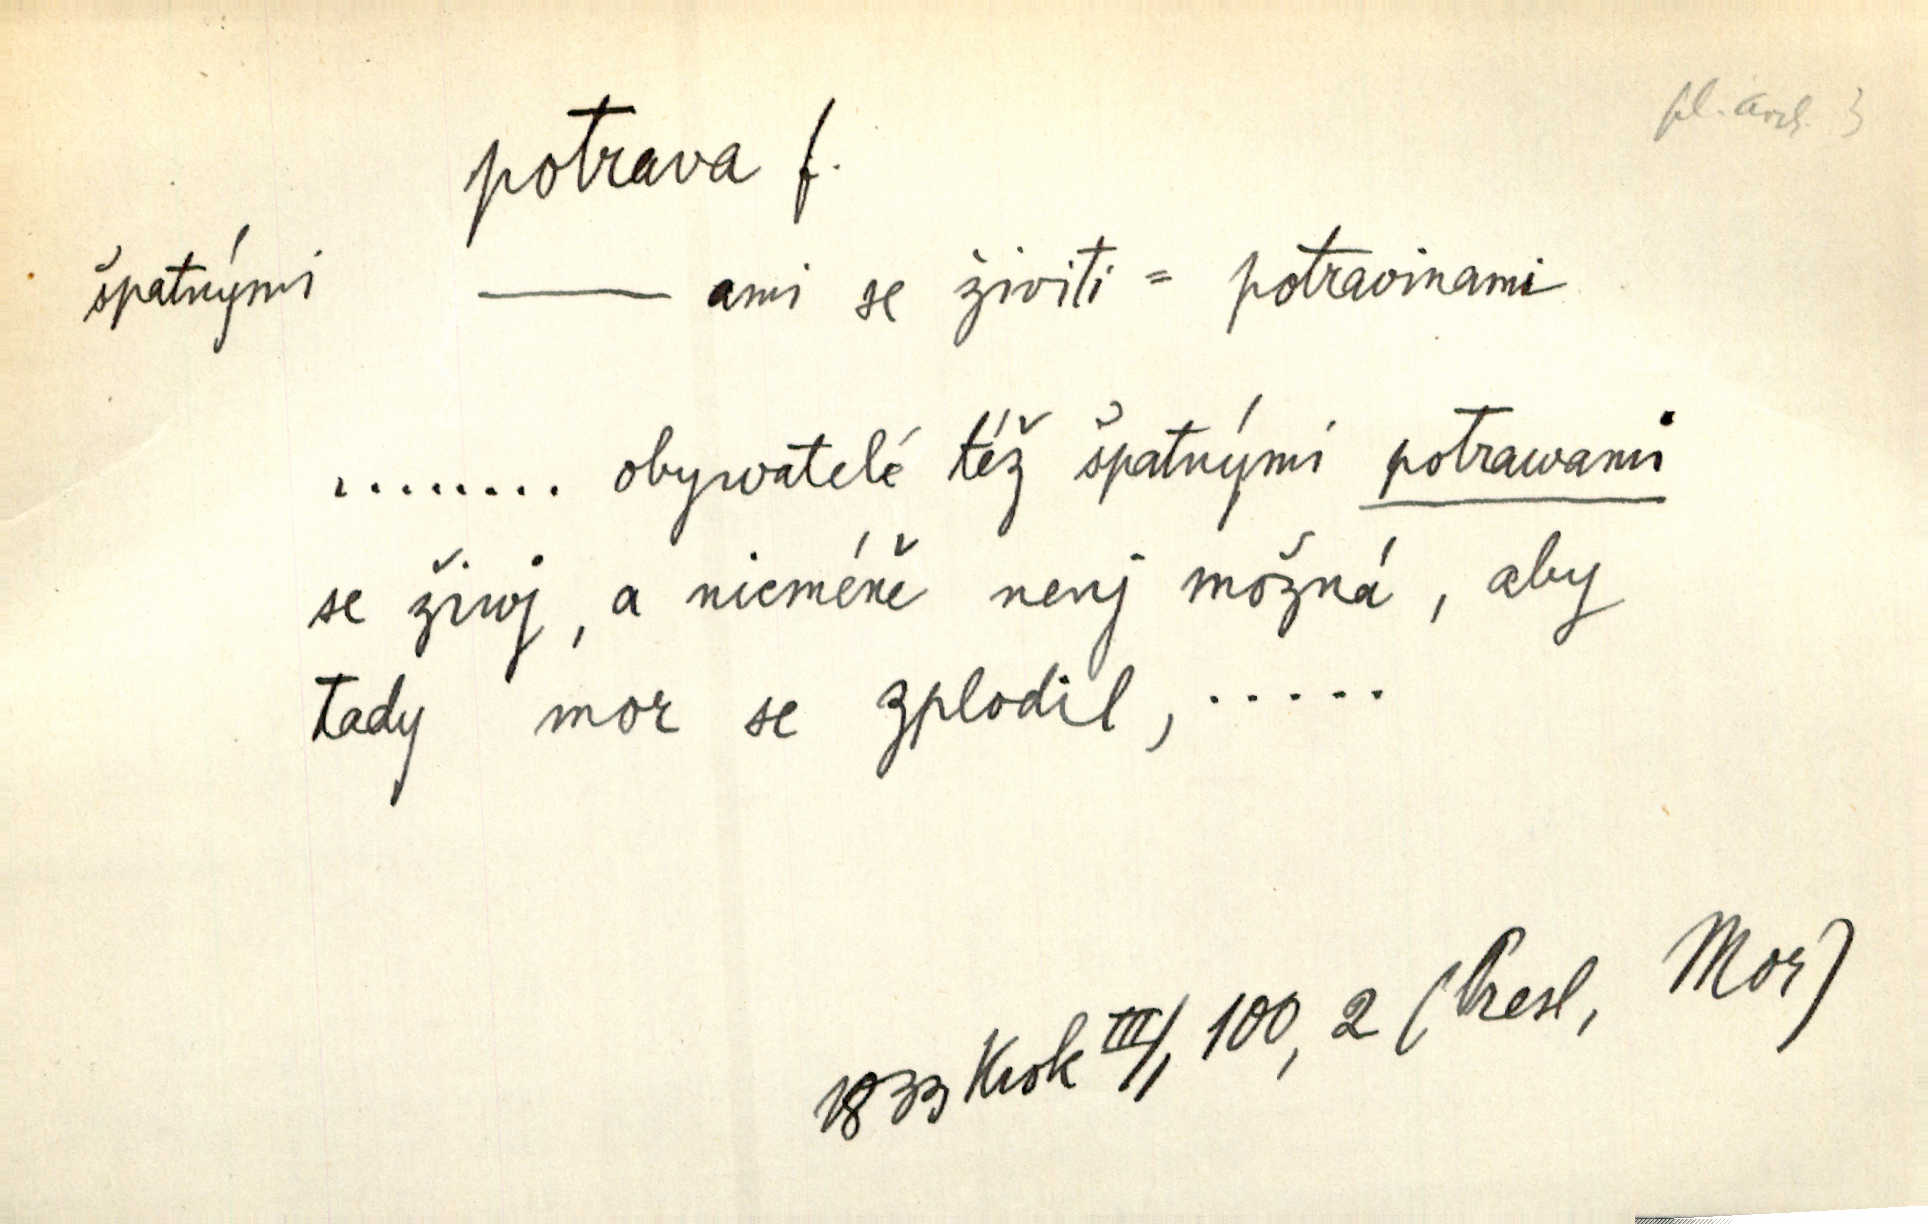 pl. arch. 3
potrava f.
špatnými ——— ami se živiti = potravinami
......... obywatelé též špatnými potrawami
se žiwj, a nicméně nenj možná, aby
tady mor se zplodil, .....
1833 Krok III/, 100, 2 (Presl, Mor)